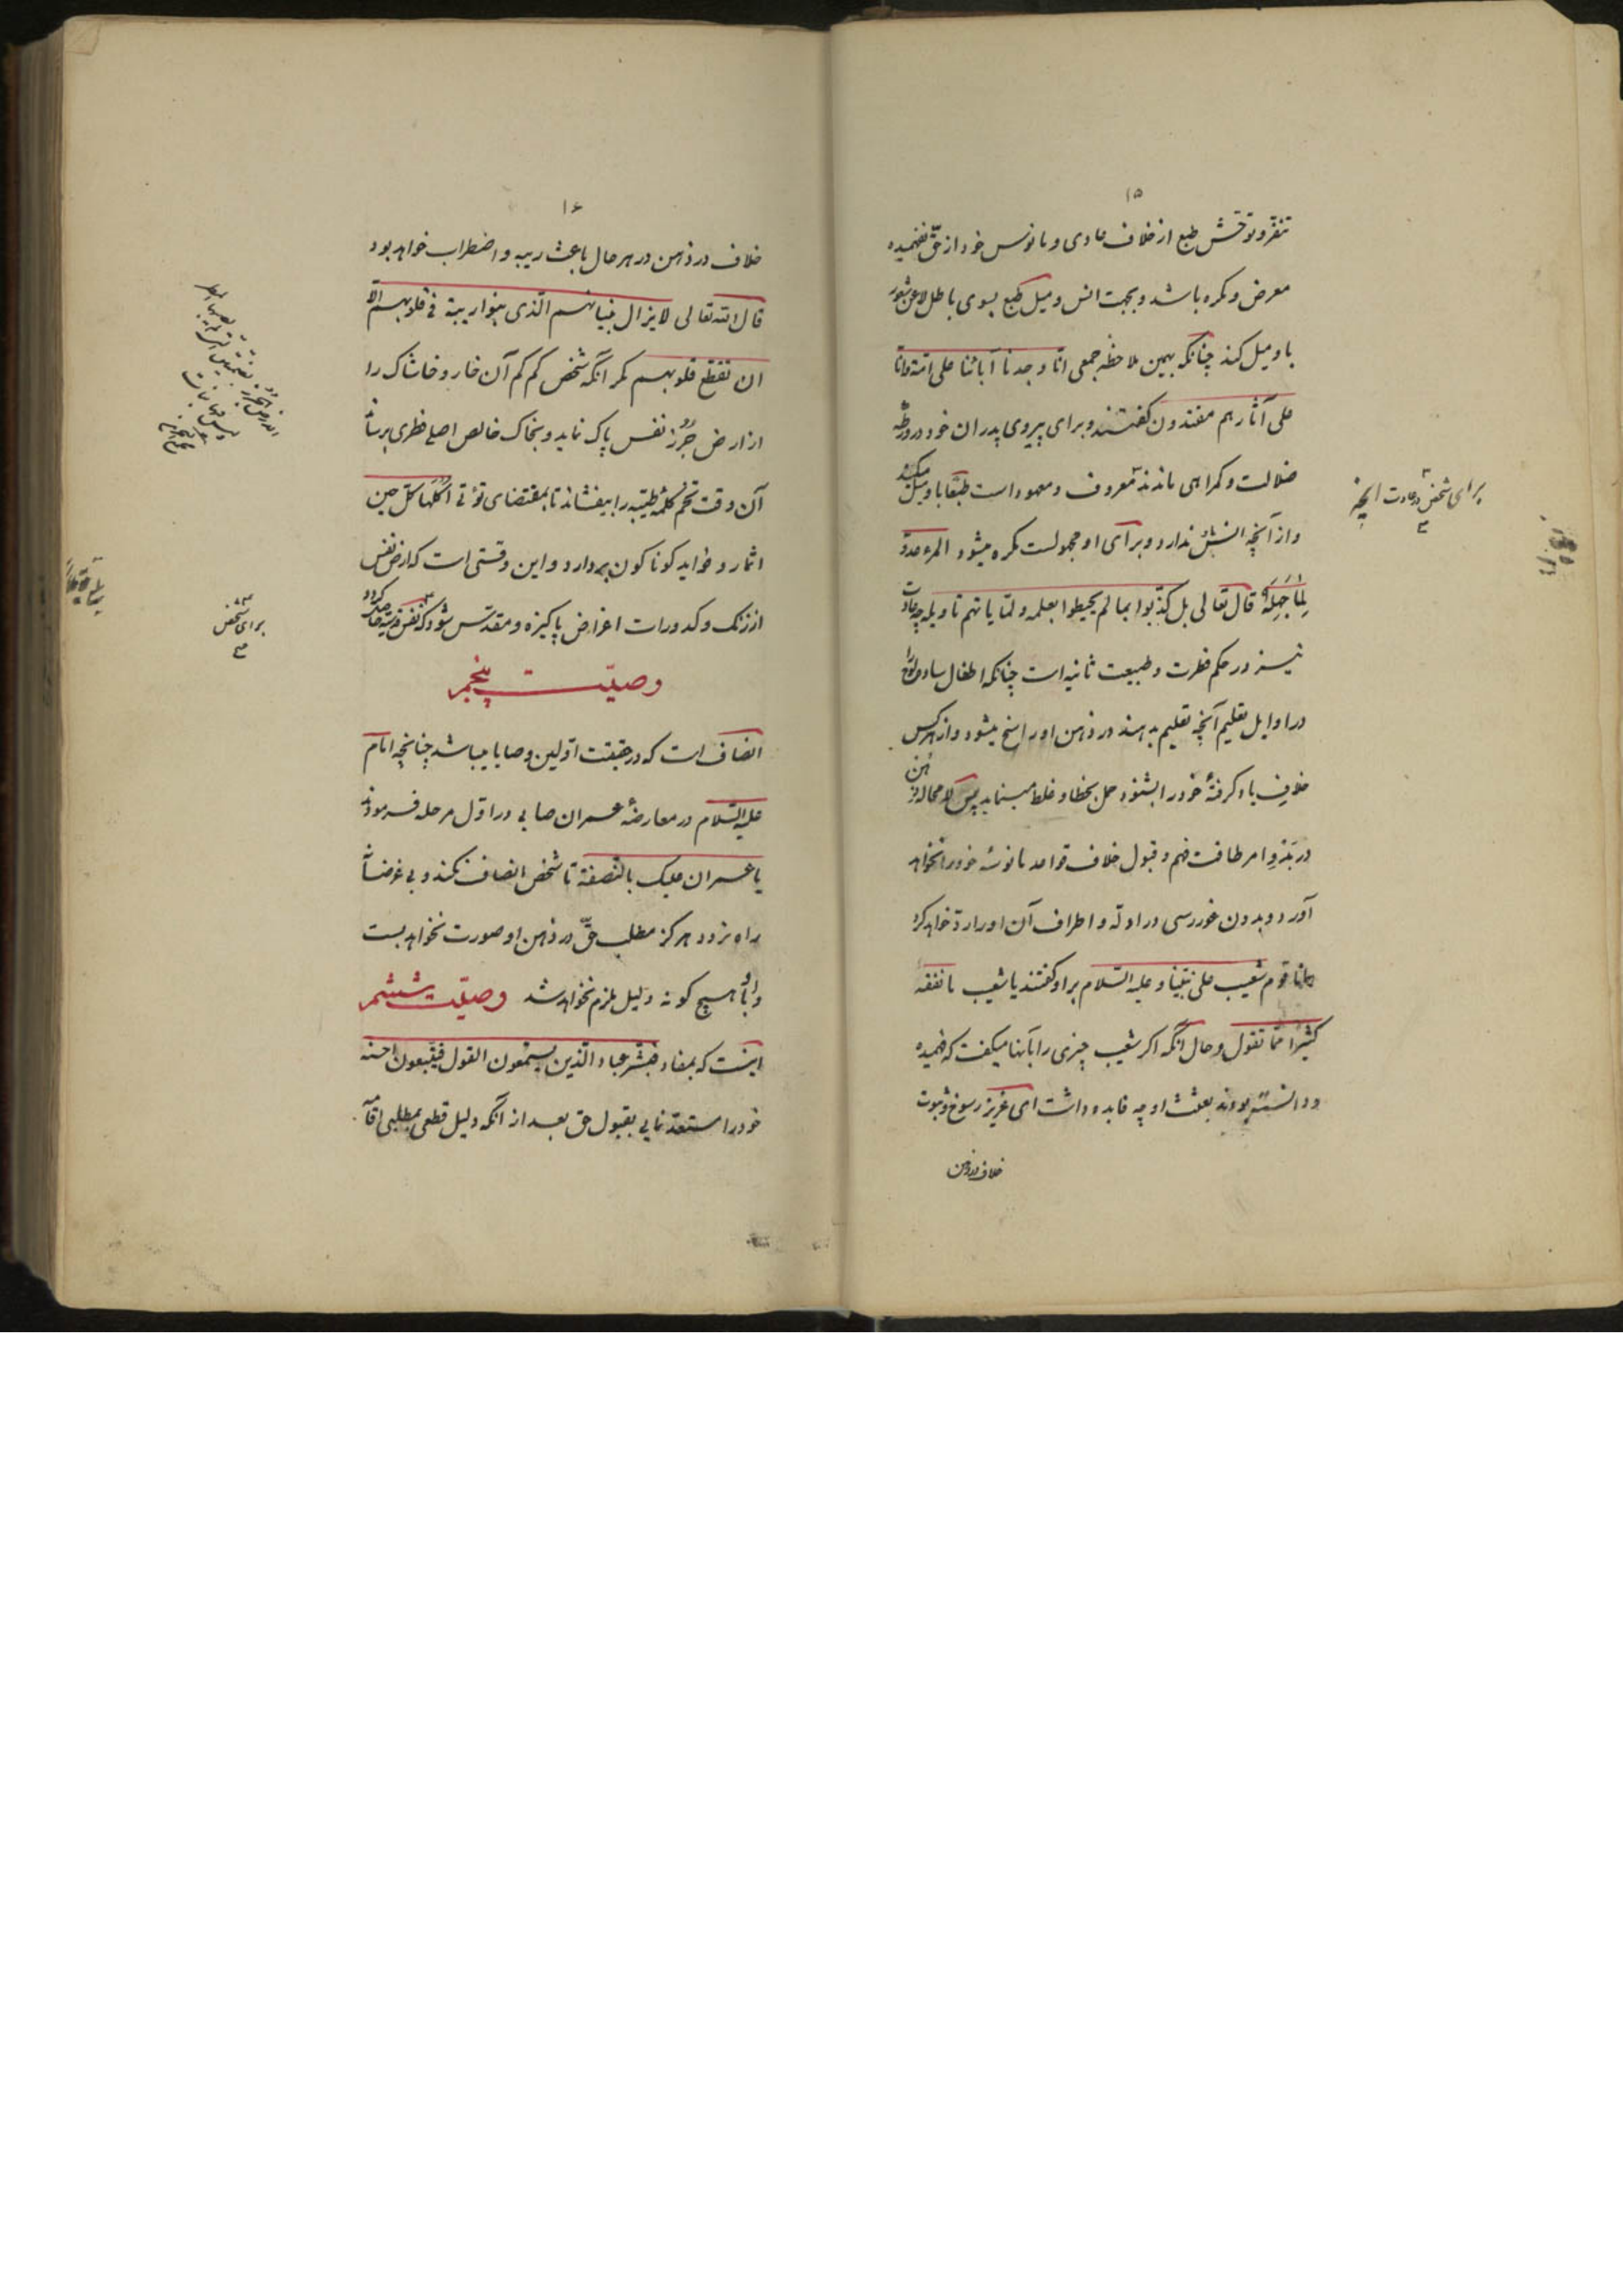 ۱۵
تنفر و توحش طبع از خلاف عادی و مانوس خود از حقّ نفهمیده
معرض و مکره باشد و بجهت انس و میل طبع بسوی باطل لاعن شعور
باو میل کند چنانکه بهمین ملاحظه جمعی انّا وجدنا آبائنا علی امّة و انّا
علی آثارهم مقتدون گفتند و برای پیروی پدران خود در ورطهٔ
ضلالت و گمراهی ماندند معروف و معهود است طبعًا باو میل میکند
و از آنچه انسش ندارد و برای او مجهولست مکره میشود المرء عدوّ
لِمٰا جَهِلَهُ قال تعالی بل کذّبوا بما لم یحیطوا بعلمه و لمّا یاتهم تاویله چه عادت
نیز در حکم فطرت و طبیعت ثانیه است چنانکه اطفال ساده لوح را
در اوایل تعلیم آنچه تعلیم بدهند در ذهن او راسخ میشود و از هر کس
خلاف یاد گرفتهٔ خود را بشنود حمل بخطا و غلط مینماید پس لامحاله ذهن
در بَدْوِ امر طاقت فهم و قبول خلاف قواعد مانوسهٔ خود را نخواهد
آورد و بدون غوررسی در ادلّه و اطراف آن او را ردّ خواهد کرد
همانا قوم شعیب علی نبیّنا و علیه السّلام براو گفتند یا شعیب ما نفقه
کثیرًا ممّا تقول و حال آنکه اگر شعیب چیزی را بآنها میگفت که فهمیده
و دانسته بودند بعثت او چه فایده داشت ای عزیز رسوخ و ثبوت
خلاف در ذهن
برای شخص در عادت آنچه
۱۶
خلاف در ذهن در هر حال باعث ریبه و اضطراب خواهد بود
قال الله تعالی لا یزال بنیانهم الّذی بنوا ریبة فی قلوبهم الّا
ان تقطّع قلوبهم مگر آنکه شخص کم کم آن خار و خاشاک را
از ارض جُرُز نفس پاک نماید و بخاک خالص اصلی فطری برساند
آن وقت تخم کلمهٔ طیّبه را بیفشاند تا بمقتضای تؤتی اُکُلَها کلّ حین
اثمار و فواید گوناگون بردارد و این وقتی است که ارض نفس
از زنک و کدورات اغراض پاکیزه و مقدّس شود که نفس قدسیه حاصل گردد
وصیّت پنجم
انصاف است که در حقیقت اوّلین وصایا میباشد چنانچه امام
علیه السّلام در معارضهٔ عمران صابی در اوّل مرحله فرمودند
یا عمران علیک بالنّصفة تا شخص انصاف نکند و بی غرضانه
راه نرود هرگز مطلب حقّ در ذهن او صورت نخواهد بست
و اَبَدًا بهیچ گونه دلیل ملزم نخواهد شد وصیّت ششم
اینست که بمفاد فبشّر عباد الّذین یستمعون القول فیتّبعون احسنه
خود را مستعدّ نمایی بقبول حق بعد از آنکه دلیل قطعی بمطلبی اقامه
برای شخص